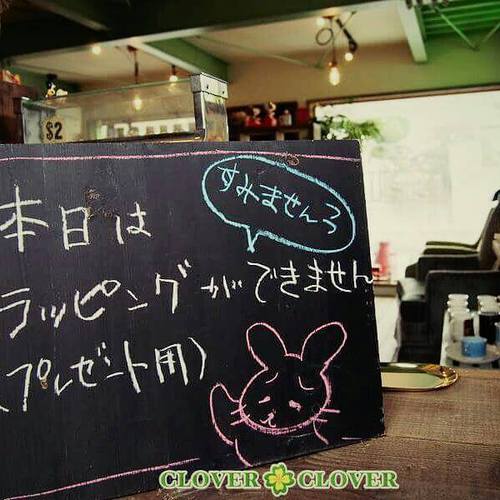 $2
すみませんろ
本日は
ラッピングができません
(プレゼント用)
CLOVER CLOVER